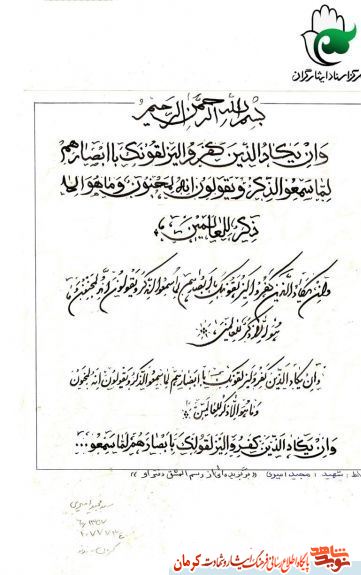 مرکز اسناد ایثارگران
بسم الله الرحمن الرحیم
وان یکاد الذین کفروا لیزلقونک باابصارهم
لما سمعوا الذکر و یقولون انه لمجنون و ما هو الا
ذکر للعالمین
وان یکاد الذین کفروا لیزلقونک بابصارهم لما سمعوا الذکر و یقولون انه لمجنون
و ما هو الا ذکر للعالمین
وان یکاد الذین کفروا لیزلقونک بابصارهم لما سمعوا الذکر و یقولون انه لمجنون
وما هو الا ذکر للعالمین
وان یکاد الذین کفروا لیزلقونک بابصارهم لما سمعو...
خط: شهید: مجید امیری «برگزیده‌ای از رسم المشق دفتر او»
نوید شاهد
پایگاه اطلاع رسانی فرهنگ ایثار و شهادت کرمان